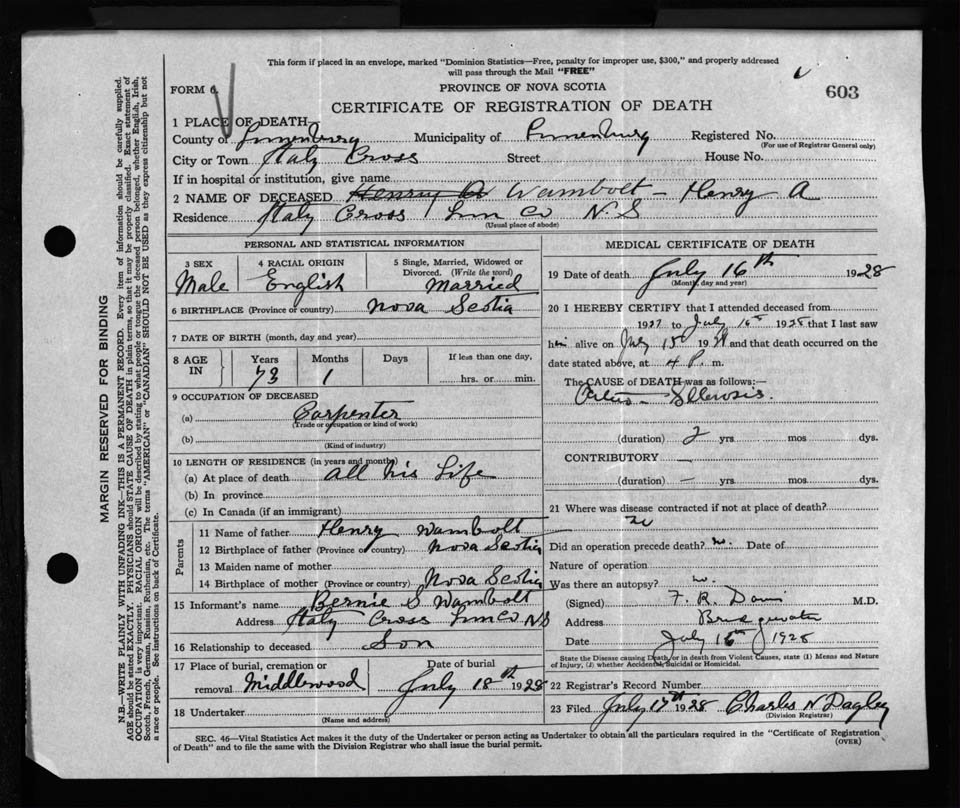 This form if placed in an envelope, marked "Dominion Statistics—Free, penalty for improper use, $300," and properly addressed
will pass through the Mail "FREE"
FORM 6.
PROVINCE OF NOVA SCOTIA
603
CERTIFICATE OF REGISTRATION OF DEATH
1 PLACE OF DEATH
County of Lunenburg Municipality of Lunenburg Registered No.
(For use of Registrar General only)
City or Town Italy Cross Street House No.
If in hospital or institution, give name
2 NAME OF DECEASED Henry A Wambolt – Henry A
Residence Italy Cross Lun Co N.S
(Usual place of abode)
PERSONAL AND STATISTICAL INFORMATION
3 SEX 4 RACIAL ORIGIN 5 Single, Married, Widowed or
Divorced. (Write the word)
Male English Married
6 BIRTHPLACE (Province or country) Nova Scotia
7 DATE OF BIRTH (month, day and year)
8 AGE IN Years Months Days If less than one day,
73 1 hrs. or min.
9 OCCUPATION OF DECEASED
(a) Carpenter
(Trade or occupation or kind of work)
(b)
(Kind of industry)
10 LENGTH OF RESIDENCE (in years and months)
(a) At place of death all his Life
(b) In province
(c) In Canada (if an immigrant)
Parents
11 Name of father Henry Wambolt
12 Birthplace of father (Province or country) Nova Scotia
13 Maiden name of mother
14 Birthplace of mother (Province or country) Nova Scotia
15 Informant's name Bernie S Wambolt
Address Italy Cross Lun Co N S
16 Relationship to deceased Son
17 Place of burial, cremation or Date of burial
removal Middlewood July 18th 1928
18 Undertaker
(Name and address)
MEDICAL CERTIFICATE OF DEATH
19 Date of death July 16th 1928
(Month, day and year)
20 I HEREBY CERTIFY that I attended deceased from
1927 to July 16th 1928 that I last saw
him alive on July 15th 1928 and that death occurred on the
date stated above, at 4 P. m.
The CAUSE of DEATH was as follows:—
Arterio-Sclerosis.
(duration) 2 yrs. mos dys.
CONTRIBUTORY —
(duration) — yrs. mos. dys.
21 Where was disease contracted if not at place of death?
Did an operation precede death? no. Date of
Nature of operation
Was there an autopsy? no.
(Signed) F. R. Davis M.D.
Address Bridgewater
Date July 16th 1928
State the Disease causing Death, or in death from Violent Causes, state (1) Means and Nature
of Injury, (2) whether Accidental, Suicidal or Homicidal.
22 Registrar's Record Number
23 Filed July 17th 1928 Charles N Dagley
(Division Registrar)
SEC. 46—Vital Statistics Act makes it the duty of the Undertaker or person acting as Undertaker to obtain all the particulars required in the "Certificate of Registration
of Death" and to file the same with the Division Registrar who shall issue the burial permit.
(OVER)
MARGIN RESERVED FOR BINDING
N.B.—WRITE PLAINLY WITH UNFADING INK—THIS IS A PERMANENT RECORD. Every item of information should be carefully supplied.
AGE should be stated EXACTLY. PHYSICIANS should STATE CAUSE OF DEATH in plain terms, so that it may be properly classified. Exact statement of
OCCUPATION is very important. RACIAL ORIGIN will be described by stating to what people or tongue the deceased person belonged, whether English, Irish,
Scotch, French, German, Russian, Ruthenian, etc. The terms "AMERICAN" or "CANADIAN" SHOULD NOT BE USED as they express citizenship but not
a race or people. See instructions on back of Certificate.